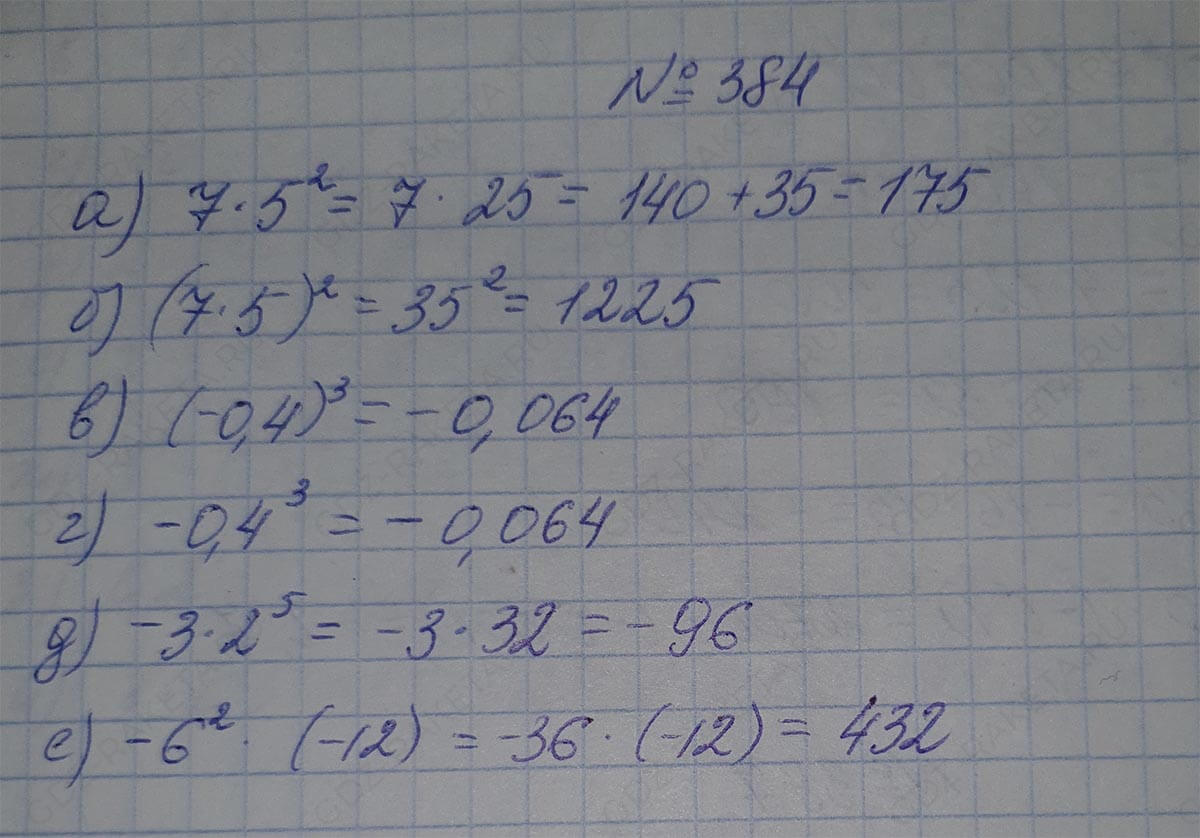 № 384
а) 7·5² = 7·25 = 140 + 35 = 175
б) (7·5)² = 35² = 1225
в) (-0,4)³ = -0,064
г) -0,4³ = -0,064
д) -3·2⁵ = -3·32 = -96
е) -6²·(-12) = -36·(-12) = 432